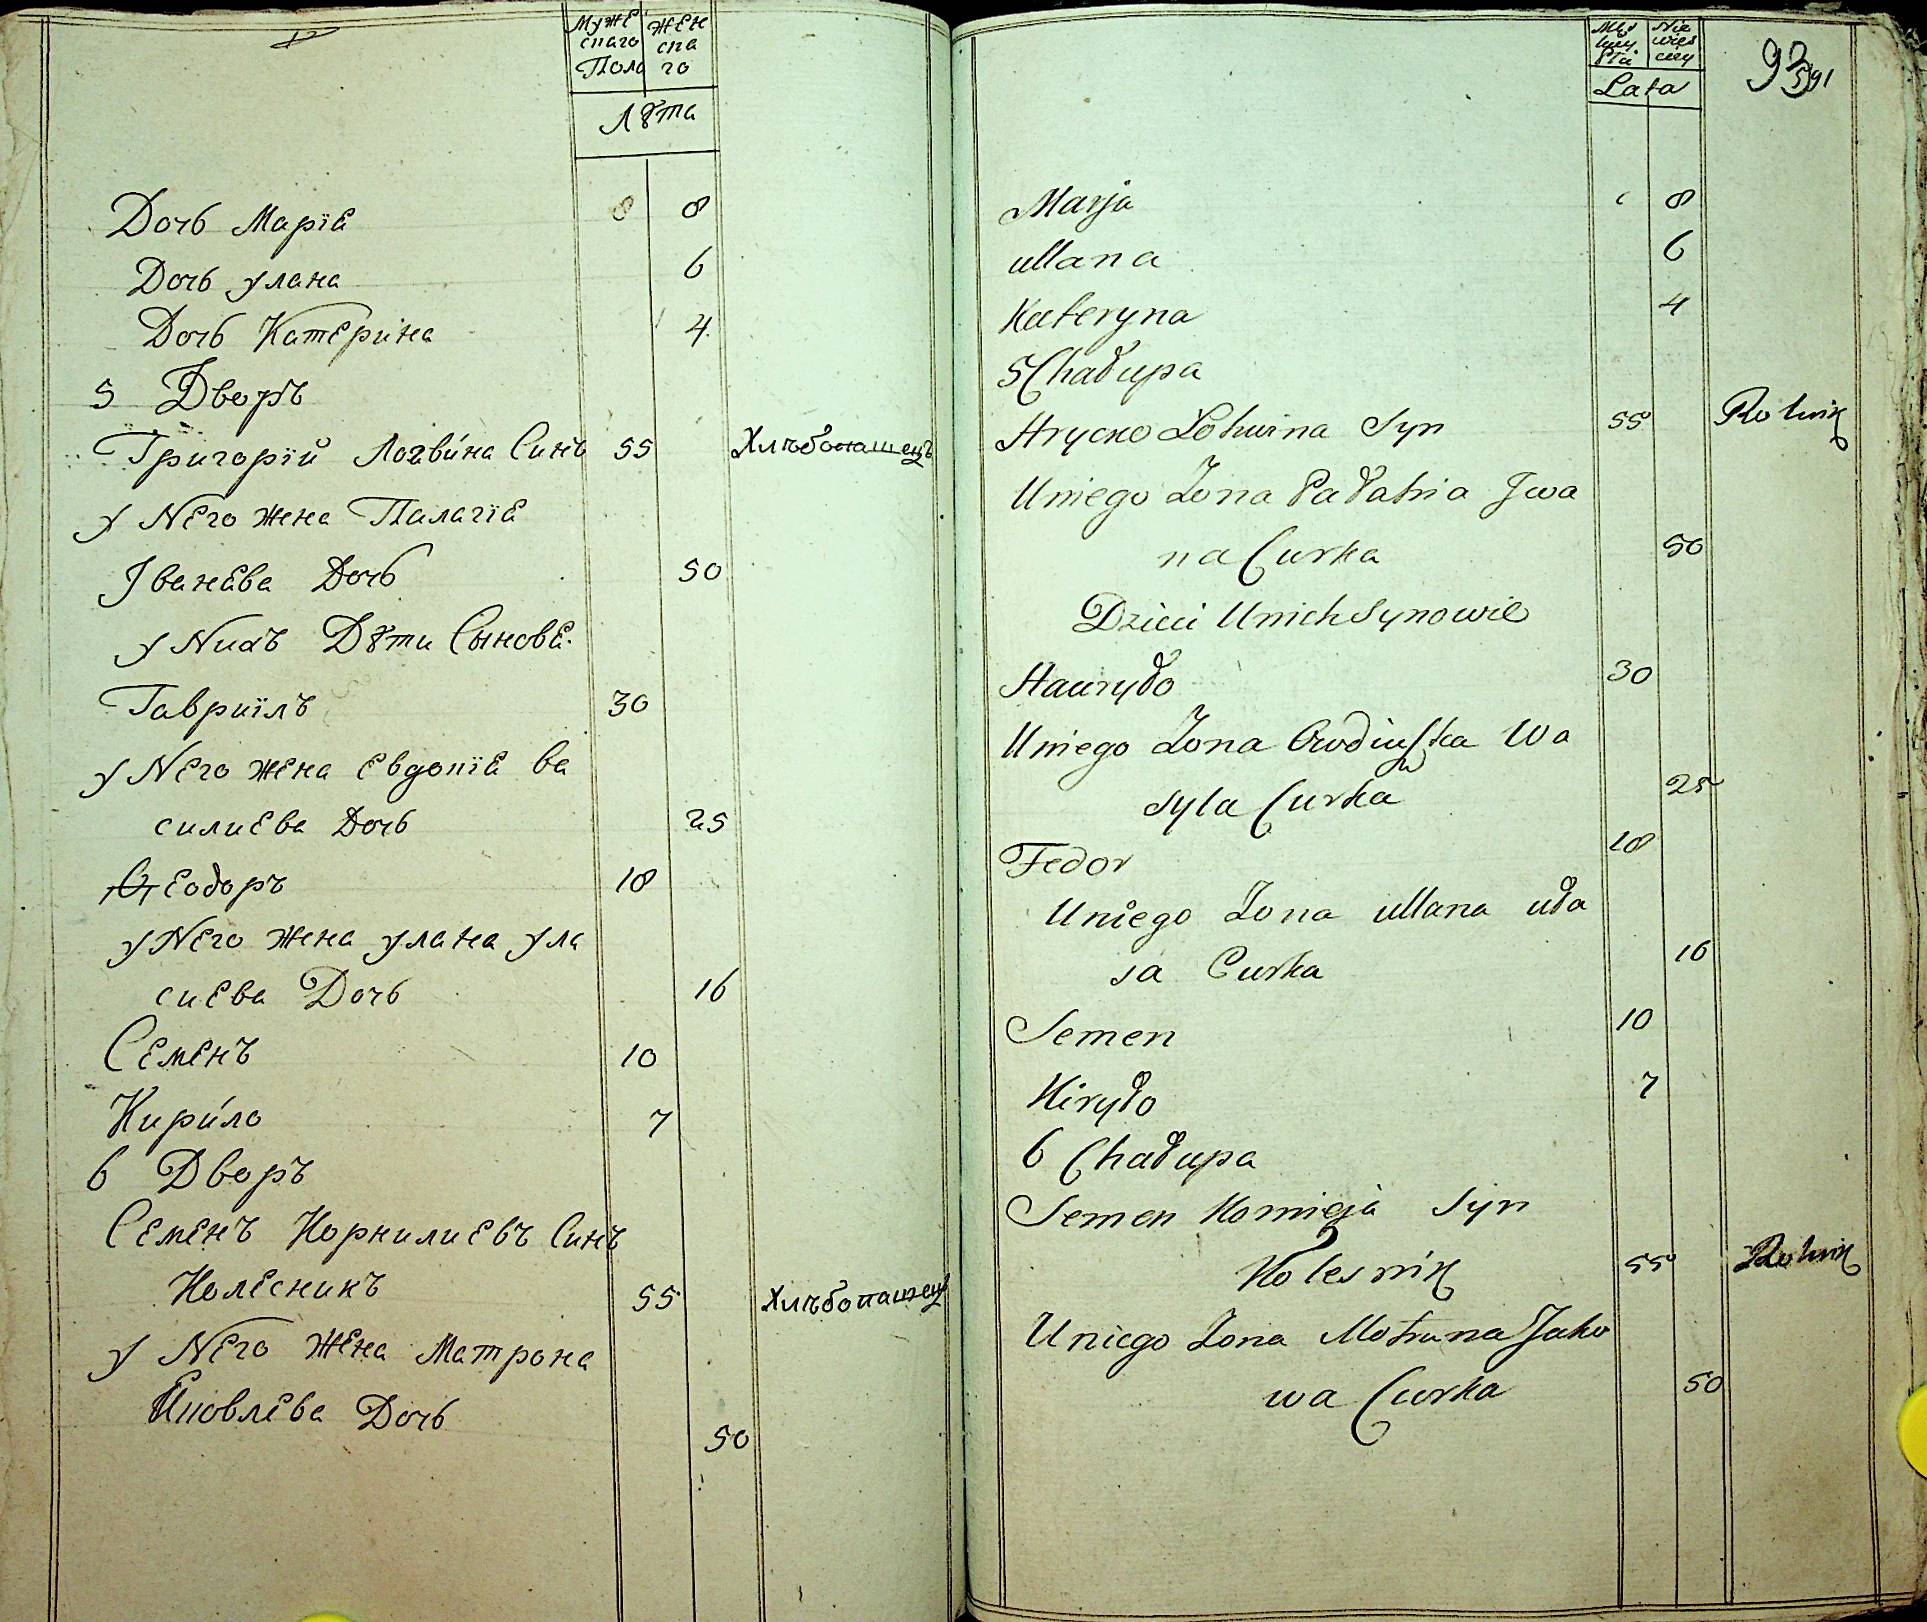 Муже ског Поло
Женска го
Лѣта
Дочь Маріе 8
Дочь улана 6
Дочь Катерина 4
5 Дворъ
Григорїй Логвина Синъ 55 Хлѣбопашецъ
у Него жена Палагїе
Іванева Дочь 50
у Нихъ Дѣти Сынове
Гавриїлъ 30
у Него жена Евдокїе ва
силиева Дочь 25
Ѳеодоръ 18
у Него жена улана ула
сиева Дочь 16
Семенъ 10
Кирило 7
6 Дворъ
Семенъ Корнилиевъ Синъ
Колесникъ 55 Хлѣбопашецъ
у Него Жена Матрона
Яковлева Дочь 50
Lata
Marja 8
ullana 6
Kateryna 4
5 Chałupa
Hrycko Lohwina Syn 55 Rolnik
Uniego Zona Pałahia Jwa
na Curka 50
Dzieci Unich Synowie
Hawryło 30
Uniego Zona Owdiuszka Wa
syla Curka 25
Fedor 18
Uniego Zona ullana uła
sa Curka 16
Semen 10
Kiryło 7
6 Chałupa
Semen Kornieja Syn
Kolesnik 55 Rolnik
Uniego Zona Motruna Jako
wa Curka 50